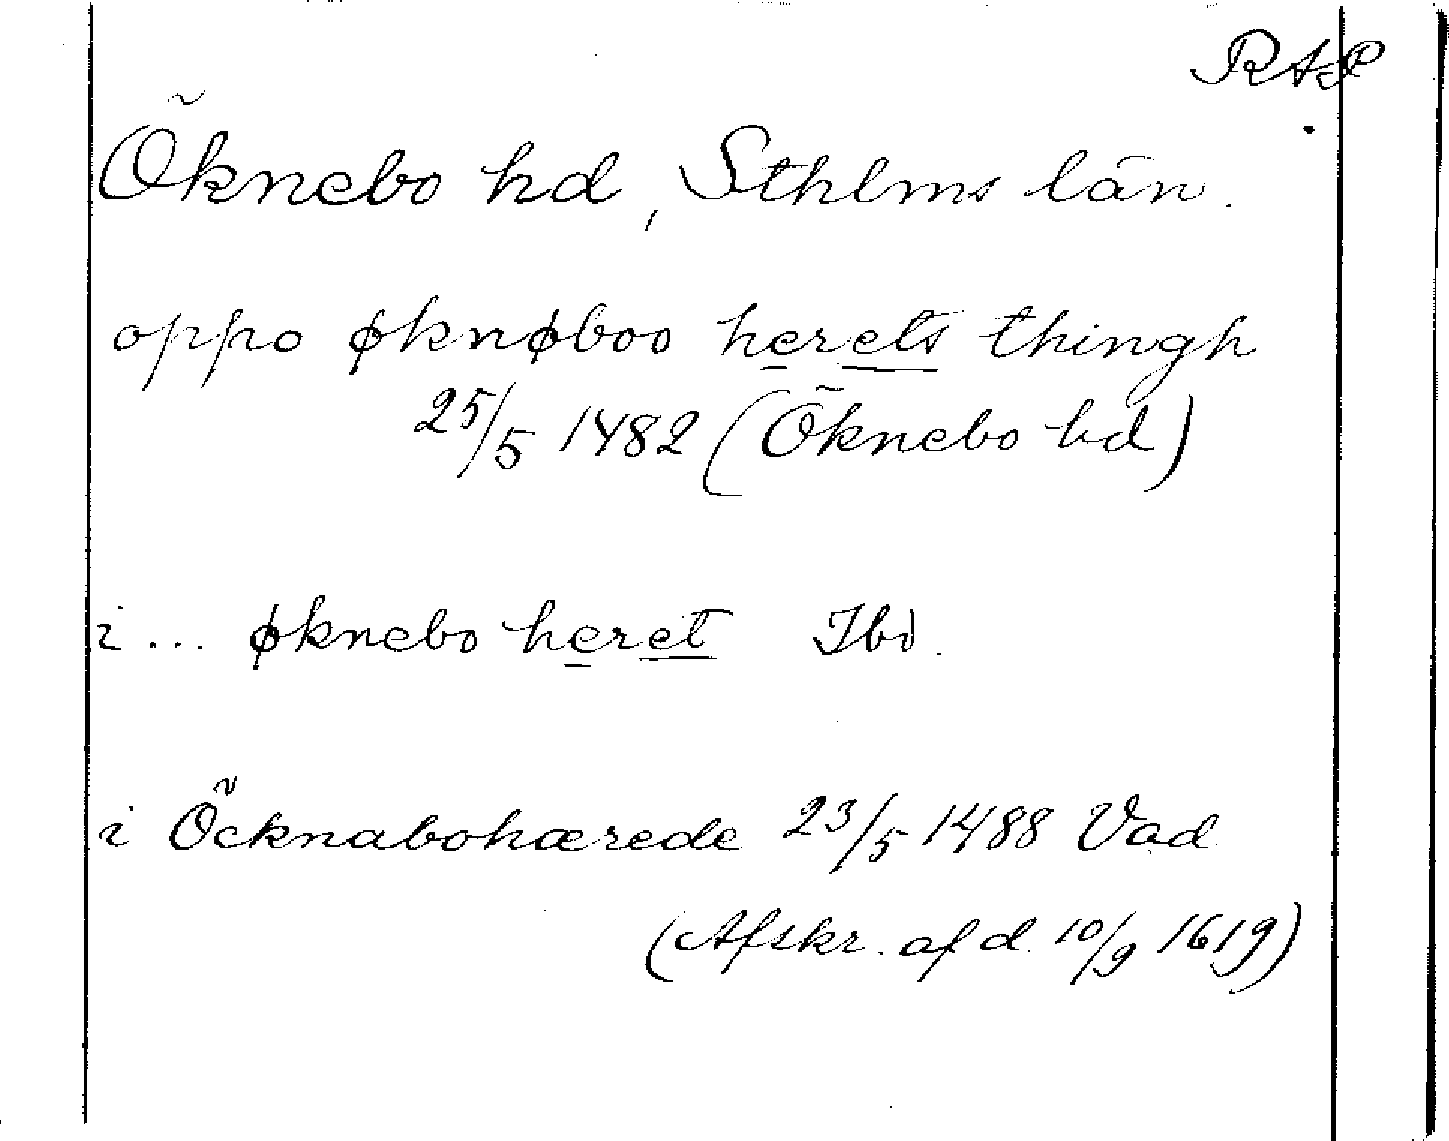 RAP
Öknebo hd, Sthlms län.
oppo øknøboo herets thingh
25/5 1482 (Öknebo hd)
i... øknebo heret Ibd.
i Öcknabohærede 23/5 1488 Vad
(Afskr. af d. 10/9 1619)